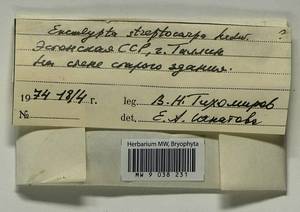 Encalypta streptocarpa Hedw. ?
Эстонская ССР, г. Таллин
На стене старого здания.
1974 18/4 г. leg. В. Н. Тихомиров
№ det. Е. А. Игнатова
Herbarium MW, Bryophyta
MW 9 038 231